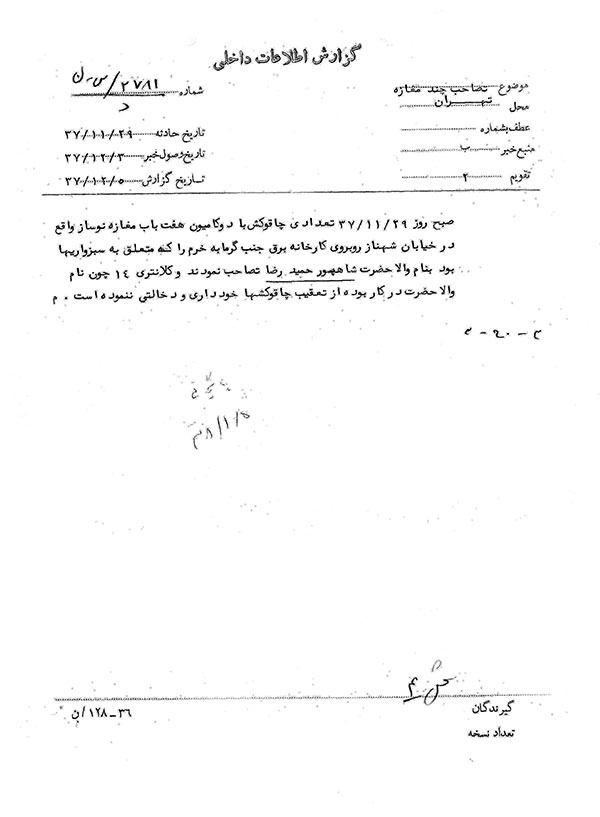 گزارش اطلاعات داخلی
موضوع تصاحب چند مغازه
محل تهـــران
عطف بشماره
منبع خبر ب
تقویم ۲
شماره ۲۷۸۱/س-ن
د
تاریخ حادثه ۳۷/۱۱/۲۹
تاریخ وصول خبر ۳۷/۱۲/۳
تاریخ گزارش ۳۷/۱۲/۵
صبح روز ۳۷/۱۱/۲۹ تعدادی چاقوکش با دو کامیون هفت باب مغازه نوساز واقع
در خیابان شهناز روبروی کارخانه برق جنب گرمابه خرم را که متعلق به سبزواریها
بود بنام والاحضرت شاهپور حمید رضا تصاحب نمودند و کلانتری ۱۴ چون نام
والاحضرت در کار بوده از تعقیب چاقوکشها خودداری و دخالتی ننموده است . م
۳۸/۱/۵
گیرندگان
تعداد نسخه
۳۶-۱۲۸/ن